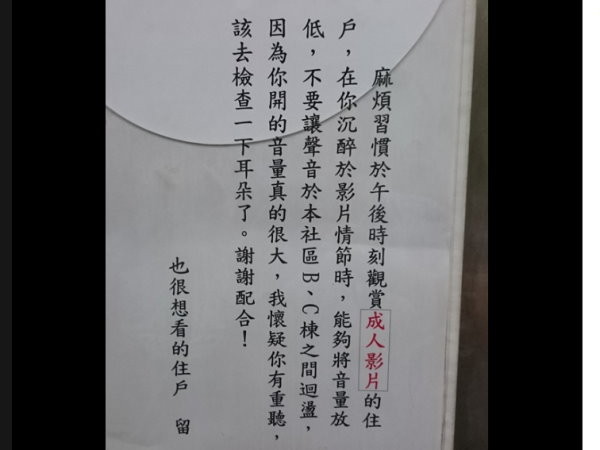 麻煩習慣於午後時刻觀賞成人影片的住
戶，在你沉醉於影片情節時，能夠將音量放
低，不要讓聲音於本社區B、C棟之間迴盪，
因為你開的音量真的很大，我懷疑你有重聽，
該去檢查一下耳朵了。謝謝配合！
也很想看的住戶　留